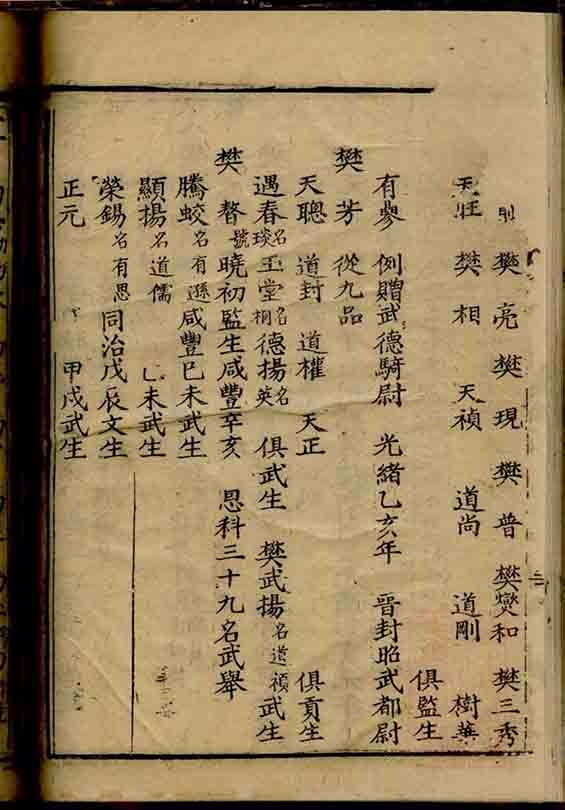 樊亮 樊現 樊普 樊爕和 樊三秀
天旺 樊相 天禎 道尚 道剛 樹華
俱監生
有參 例贈武德騎尉 光緒乙亥年 晉封昭武都尉
樊芳 從九品
天聰 道封 道權 天正 俱貢生
遇春名琰 玉堂名桐 德揚名英 俱武生 樊武揚名道禎武生
樊督號曉初監生咸豐辛亥 恩科三十九名武舉
騰蛟名有遜咸豐巳未武生
顯揚名道儒 乙未武生
榮錫名有思同治戊辰文生
正元 甲戌武生